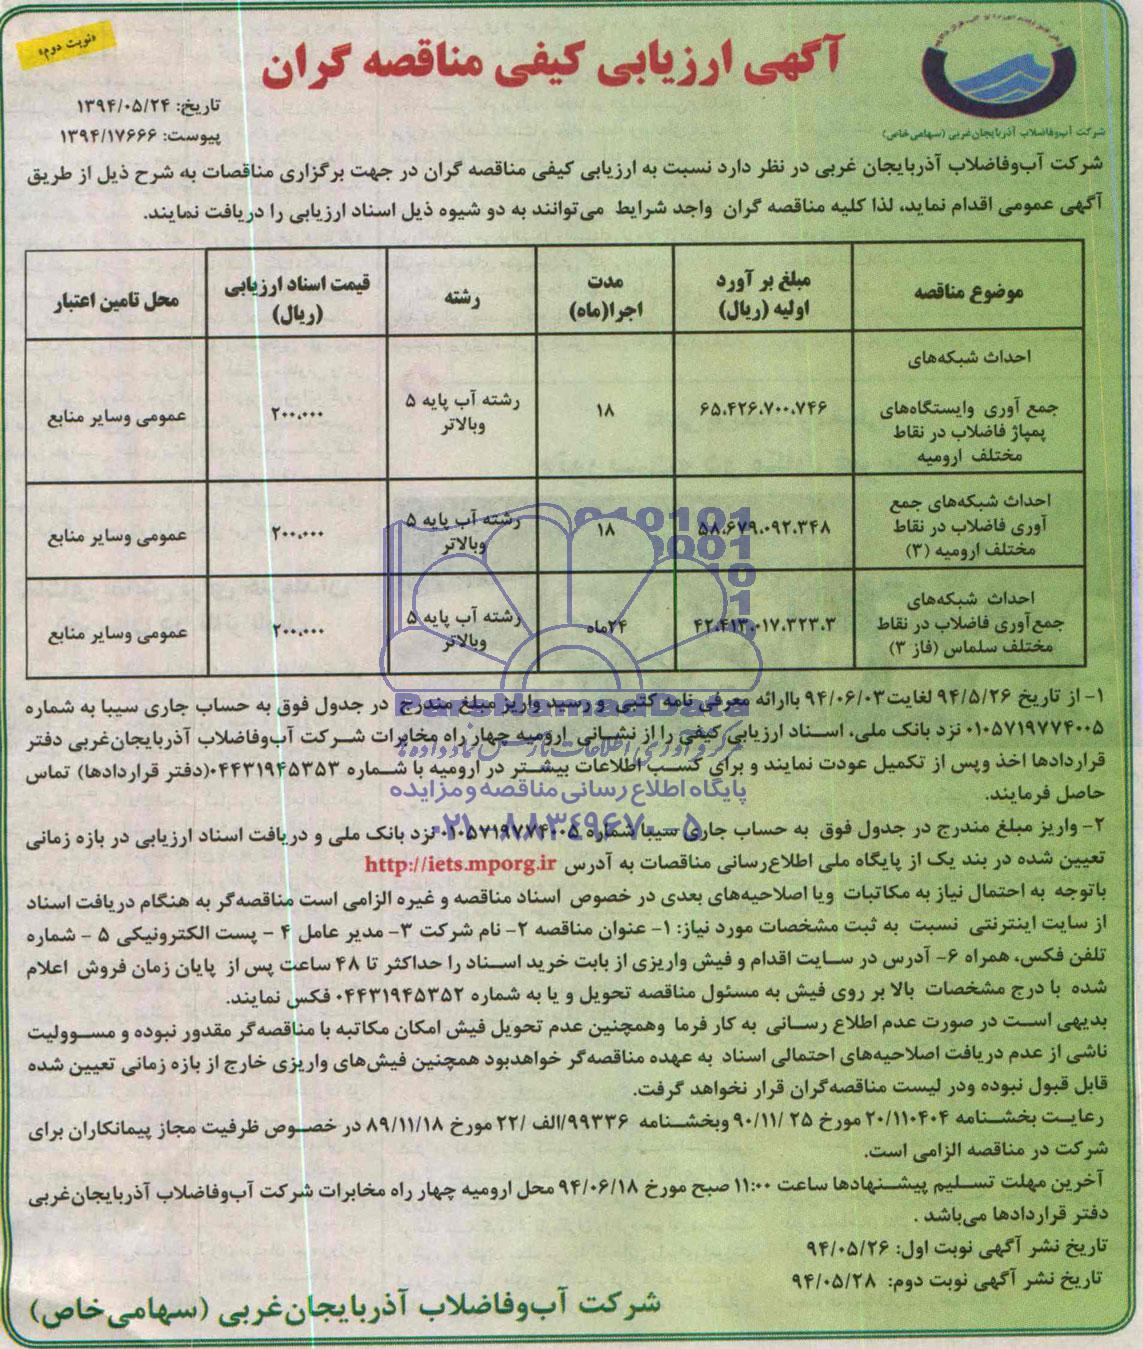 «نوبت دوم»
آگهی ارزیابی کیفی مناقصه گران
تاریخ: ۱۳۹۴/۰۵/۲۴
پیوست: ۱۳۹۴/۱۷۶۶۶
شرکت آب‌وفاضلاب آذربایجان‌غربی (سهامی‌خاص)
شرکت آب‌وفاضلاب آذربایجان غربی در نظر دارد نسبت به ارزیابی کیفی مناقصه گران در جهت برگزاری مناقصات به شرح ذیل از طریق
آگهی عمومی اقدام نماید، لذا کلیه مناقصه گران واجد شرایط می‌توانند به دو شیوه ذیل اسناد ارزیابی را دریافت نمایند.
موضوع مناقصه
مبلغ بر آورد
اولیه (ریال)
مدت
اجرا(ماه)
رشته
قیمت اسناد ارزیابی
(ریال)
محل تامین اعتبار
احداث شبکه‌های
جمع آوری وایستگاه‌های
پمپاژ فاضلاب در نقاط
مختلف ارومیه
۶۵،۴۲۶،۷۰۰،۷۴۶
۱۸
رشته آب پایه ۵
وبالاتر
۲۰۰،۰۰۰
عمومی وسایر منابع
احداث شبکه‌های جمع
آوری فاضلاب در نقاط
مختلف ارومیه (۳)
۵۸،۶۷۹،۰۹۲،۳۴۸
۱۸
رشته آب پایه ۵
وبالاتر
۲۰۰،۰۰۰
عمومی وسایر منابع
احداث شبکه‌های
جمع‌آوری فاضلاب در نقاط
مختلف سلماس (فاز ۳)
۴۲،۴۱۳،۰۱۷،۳۲۳،۳
۲۴ماه
رشته آب پایه ۵
وبالاتر
۲۰۰،۰۰۰
عمومی وسایر منابع
۱- از تاریخ ۹۴/۵/۲۶ لغایت۹۴/۰۶/۰۳ باارائه معرفی نامه کتبی و رسید واریز مبلغ مندرج در جدول فوق به حساب جاری سیبا به شماره
۰۱۰۵۷۱۹۷۷۴۰۰۵ نزد بانک ملی، اسناد ارزیابی کیفی را از نشانی ارومیه چهار راه مخابرات شرکت آب‌وفاضلاب آذربایجان‌غربی دفتر
قراردادها اخذ وپس از تکمیل عودت نمایند و برای کسب اطلاعات بیشتر در ارومیه با شماره ۰۴۴۳۱۹۴۵۳۵۳(دفتر قراردادها) تماس
حاصل فرمایند.
۲- واریز مبلغ مندرج در جدول فوق به حساب جاری سیبا شماره ۰۱۰۵۷۱۹۷۷۴۰۰۵ نزد بانک ملی و دریافت اسناد ارزیابی در بازه زمانی
تعیین شده در بند یک از پایگاه ملی اطلاع‌رسانی مناقصات به آدرس http://iets.mporg.ir
باتوجه به احتمال نیاز به مکاتبات ویا اصلاحیه‌های بعدی در خصوص اسناد مناقصه و غیره الزامی است مناقصه‌گر به هنگام دریافت اسناد
از سایت اینترنتی نسبت به ثبت مشخصات مورد نیاز: ۱- عنوان مناقصه ۲- نام شرکت ۳- مدیر عامل ۴ - پست الکترونیکی ۵ - شماره
تلفن فکس، همراه ۶- آدرس در سایت اقدام و فیش واریزی از بابت خرید اسناد را حداکثر تا ۴۸ ساعت پس از پایان زمان فروش اعلام
شده با درج مشخصات بالا بر روی فیش به مسئول مناقصه تحویل و یا به شماره ۰۴۴۳۱۹۴۵۳۵۲ فکس نمایند.
بدیهی است در صورت عدم اطلاع رسانی به کار فرما وهمچنین عدم تحویل فیش امکان مکاتبه با مناقصه‌گر مقدور نبوده و مسوولیت
ناشی از عدم دریافت اصلاحیه‌های احتمالی اسناد به عهده مناقصه‌گر خواهدبود همچنین فیش‌های واریزی خارج از بازه زمانی تعیین شده
قابل قبول نبوده ودر لیست مناقصه‌گران قرار نخواهد گرفت.
رعایت بخشنامه ۲۰/۱۱۰۴۰۴ مورخ ۲۵ /۹۰/۱۱ وبخشنامه ۹۹۳۳۶/الف /۲۲ مورخ ۸۹/۱۱/۱۸ در خصوص ظرفیت مجاز پیمانکاران برای
شرکت در مناقصه الزامی است.
آخرین مهلت تسلیم پیشنهادها ساعت ۱۱:۰۰ صبح مورخ ۹۴/۰۶/۱۸ محل ارومیه چهار راه مخابرات شرکت آب‌وفاضلاب آذربایجان‌غربی
دفتر قراردادها می‌باشد .
تاریخ نشر آگهی نوبت اول: ۹۴/۰۵/۲۶
تاریخ نشر آگهی نوبت دوم: ۹۴/۰۵/۲۸
شرکت آب‌وفاضلاب آذربایجان‌غربی (سهامی‌خاص)
ParsNamadData
پایگاه اطلاع رسانی مناقصه و مزایده
۰۲۱-۸۸۳۴۹۶۷۰-۵